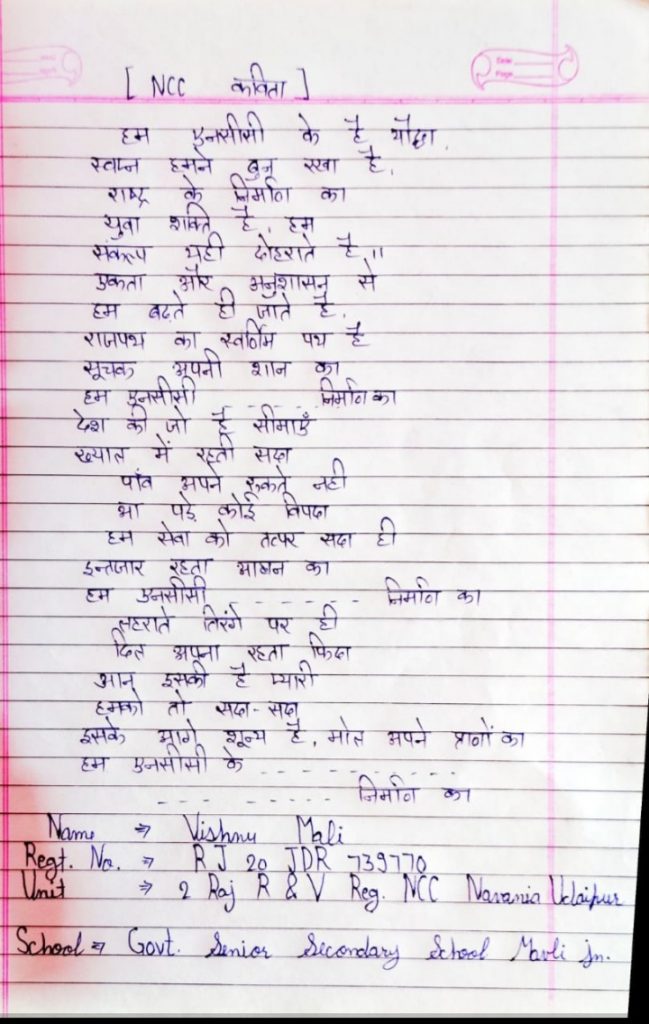 [ NCC कविता ]
हम एनसीसी के है योद्धा,
स्वप्न हमने बुन रखा है,
राष्ट्र के निर्माण का
युवा शक्ति है, हम
संकल्प यही दोहराते है ।।
एकता और अनुशासन से
हम बढ़ते ही जाते है,
राजपथ का स्वर्णिम पथ है
सूचक अपनी शान का
हम एनसीसी - - - - - - निर्माण का
देश की जो है सीमाएँ
ख्यात में रहती सदा
पांव अपने रूकते नही
आ पड़े कोई विपदा
हम सेवा को तत्पर सदा ही
इन्तजार रहता का
हम एनसीसी - - - - - - निर्माण का
लहराते तिरंगे पर ही
दिल अपना रहता फिदा
आन इसकी है प्यारी
हमको तो सदा-सदा
इसके आगे शून्य है, मोल अपने प्राणों का
हम एनसीसी के - - - - - - - - - -
- - - - - - - निर्माण का
Name ⇒ Vishnu Mali
Regt. No. ⇒ RJ 20 JDR 739770
Unit ⇒ 2 Raj R & V Reg. NCC Navania Udaipur
School ⇒ Govt. Senior Secondary School Mavli Jn.